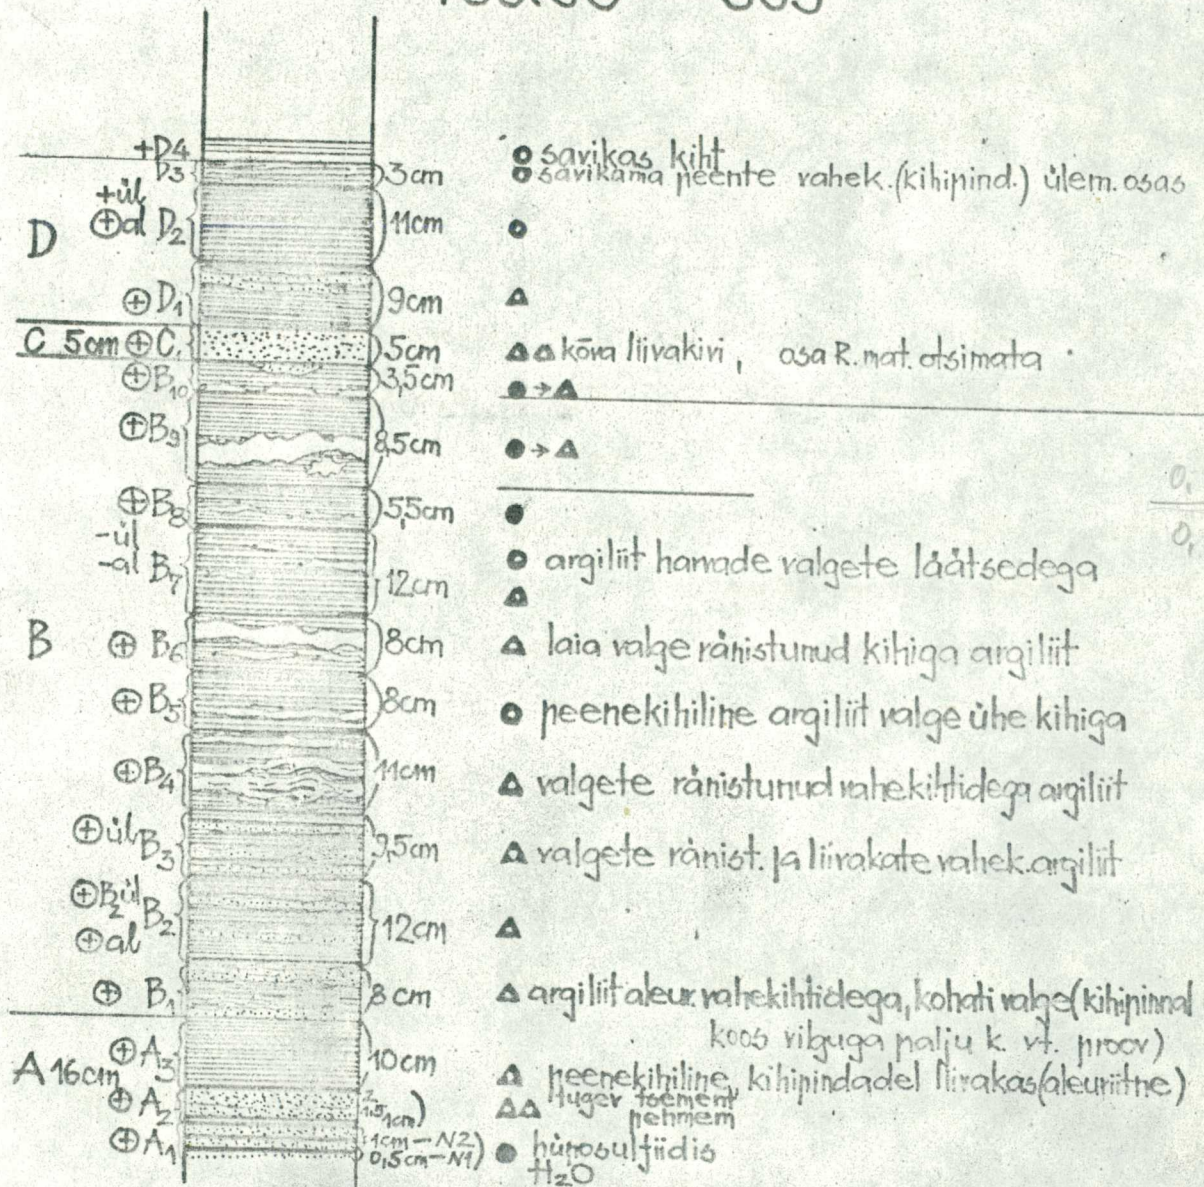 +D4 savikas kiht
D3 3cm savikama peente vahek.(kihipind.) ülem. osas
+ül
⊕al D2 11cm
D
⊕ D1 9cm
C 5cm ⊕ C1 5cm kõva liivakivi, osa R. mat. otsimata
⊕B10 3,5cm
⊕B9 8,5cm
⊕B8 5,5cm
-ül
-al B7 12cm argiliit harvade valgete läätsedega
B ⊕ B6 8cm laia valge ränistunud kihiga argiliit
⊕ B5 8cm peenekihiline argiliit valge ühe kihiga
⊕B4 11cm valgete ränistunud vahekihtidega argiliit
⊕ül B3 9,5cm valgete ränist. ja liivakate vahek. argiliit
⊕B2 ül B2 12cm
⊕al
⊕ B1 8 cm argiliit aleur. vahekihtidega, kohati valge (kihipinnal
koos vilguga palju k. vt. proov)
⊕A3 10cm
A 16cm peenekihiline, kihipindadel liivakas (aleuriitne)
⊕ A2 1cm) tuger tsement
pehmem
⊕A1 1cm-N2
0,5cm-N1) hüposulfiidis
H2O